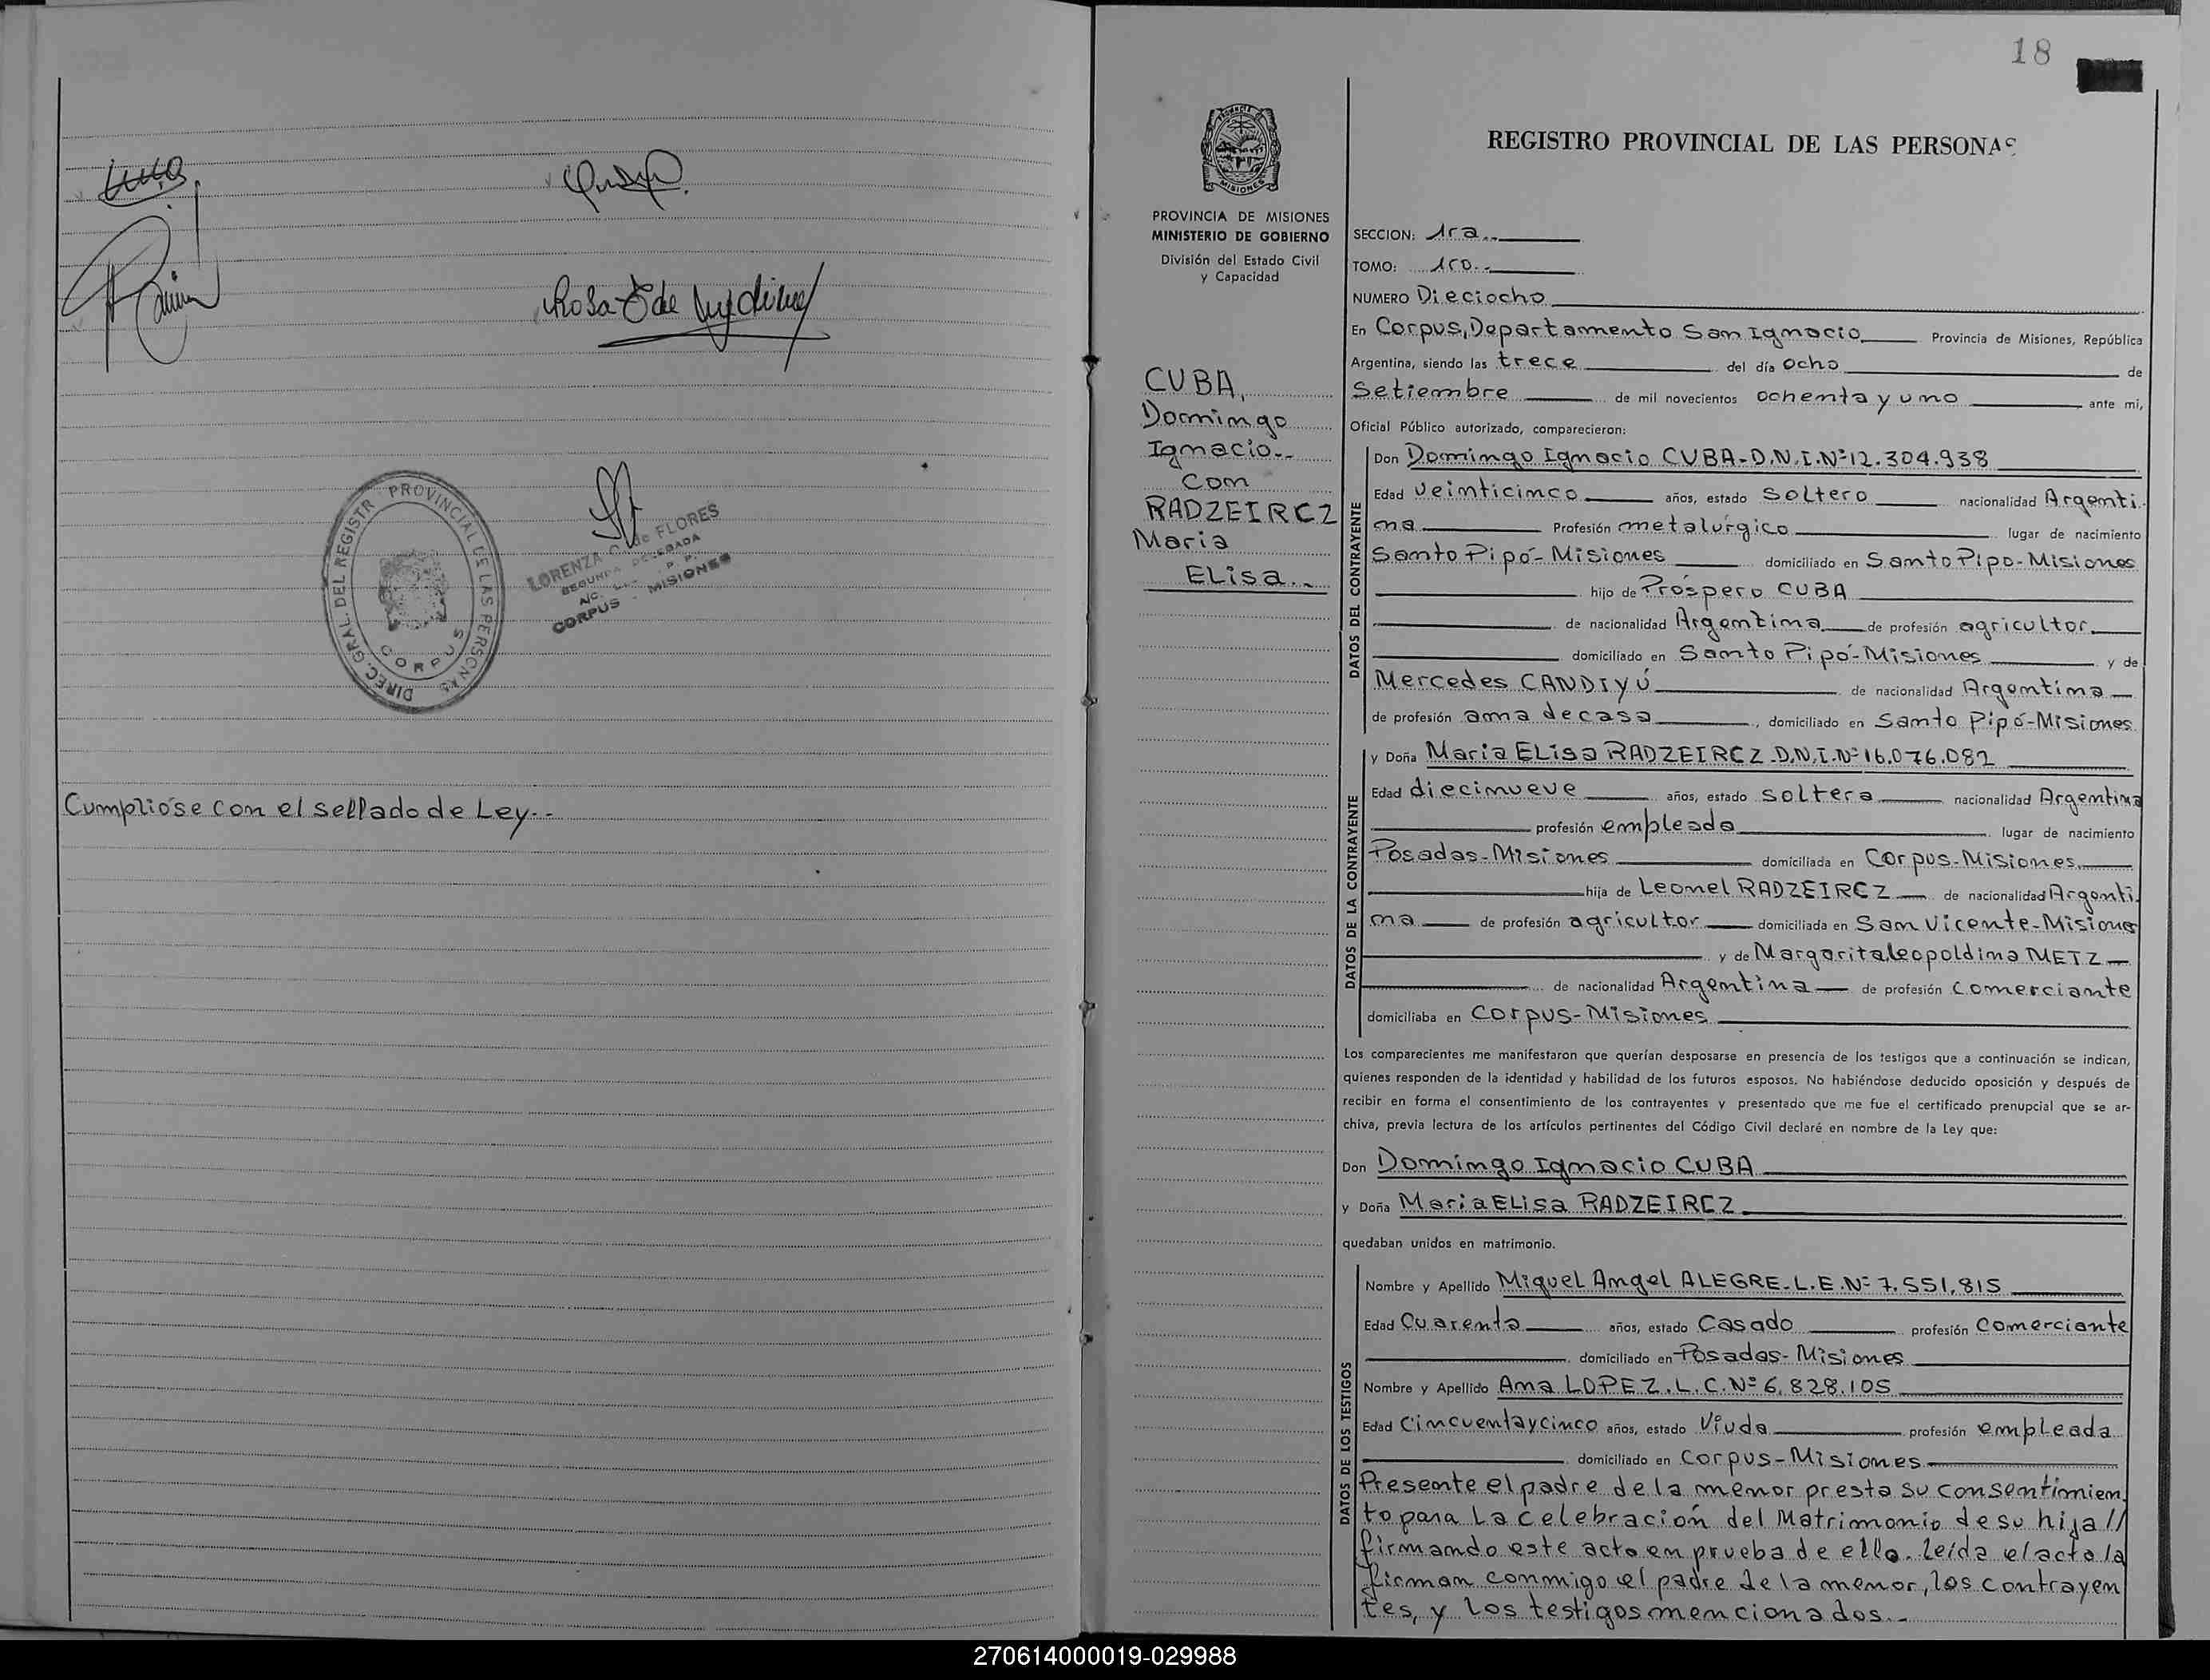 Rosa
DIREC. GRAL. DEL REGISTR PROVINCIAL DE LAS PERSONAS
CORPUS
LORENZA de FLORES
SEGUNDA DELEGADA
CORPUS - MISIONES
Cumplióse con el sellado de Ley.-
18
PROVINCIA DE MISIONES
MINISTERIO DE GOBIERNO
División del Estado Civil
y Capacidad
CUBA,
Domingo
Ignacio.-
Con
RADZEIRCZ
Maria
ELisa.-
REGISTRO PROVINCIAL DE LAS PERSONAS
SECCION: 1ra.
TOMO: 1ro.-
NUMERO Dieciocho
En Corpus, Departamento San Ignacio Provincia de Misiones, República
Argentina, siendo las trece del día ocho de
Setiembre de mil novecientos ochenta y uno ante mi,
Oficial Público autorizado, comparecieron:
DATOS DEL CONTRAYENTE
Don Domingo Ignacio CUBA-D.N.I.Nº12.304.938
Edad veinticinco años, estado soltero nacionalidad Argenti
na Profesión metalúrgico lugar de nacimiento
Santo Pipó-Misiones domiciliado en Santo Pipo-Misiones
hijo de Próspero CUBA
de nacionalidad Argentina de profesión agricultor
domiciliado en Santo Pipó-Misiones y de
Mercedes CANDIYÚ de nacionalidad Argentina
de profesión ama de casa, domiciliado en Santo Pipó-Misiones
DATOS DE LA CONTRAYENTE
y Doña Maria ELisa RADZEIRCZ-D.N.I.Nº16.076.082
Edad diecinueve años, estado soltera nacionalidad Argentina
profesión empleada lugar de nacimiento
Posadas-Misiones domiciliada en Corpus-Misiones
hija de Leonel RADZEIRCZ de nacionalidad Argenti
na de profesión agricultor domiciliada en San Vicente-Misiones
y de Margarita Leopoldina METZ
de nacionalidad Argentina de profesión comerciante
domiciliaba en Corpus-Misiones
Los comparecientes me manifestaron que querían desposarse en presencia de los testigos que a continuación se indican,
quienes responden de la identidad y habilidad de los futuros esposos. No habiéndose deducido oposición y después de
recibir en forma el consentimiento de los contrayentes y presentado que me fue el certificado prenupcial que se ar-
chiva, previa lectura de los artículos pertinentes del Código Civil declaré en nombre de la Ley que:
Don Domingo Ignacio CUBA
y Doña Maria ELisa RADZEIRCZ
quedaban unidos en matrimonio.
DATOS DE LOS TESTIGOS
Nombre y Apellido Miguel Angel ALEGRE-L.E.Nº 7.551.815
Edad Cuarenta años, estado Casado profesión Comerciante
domiciliado en Posadas-Misiones
Nombre y Apellido Ana LOPEZ.L.C.Nº 6.828.105
Edad Cincuentaycinco años, estado Viuda profesión empleada
domiciliado en Corpus-Misiones
Presente el padre de la menor presta su consentimien
to para La celebración del Matrimonio de su hija//
firmando este acto en prueba de ello. Leída el acta la
firman conmigo el padre de la menor, los contrayen
tes, y los testigos mencionados.-
270614000019-029988